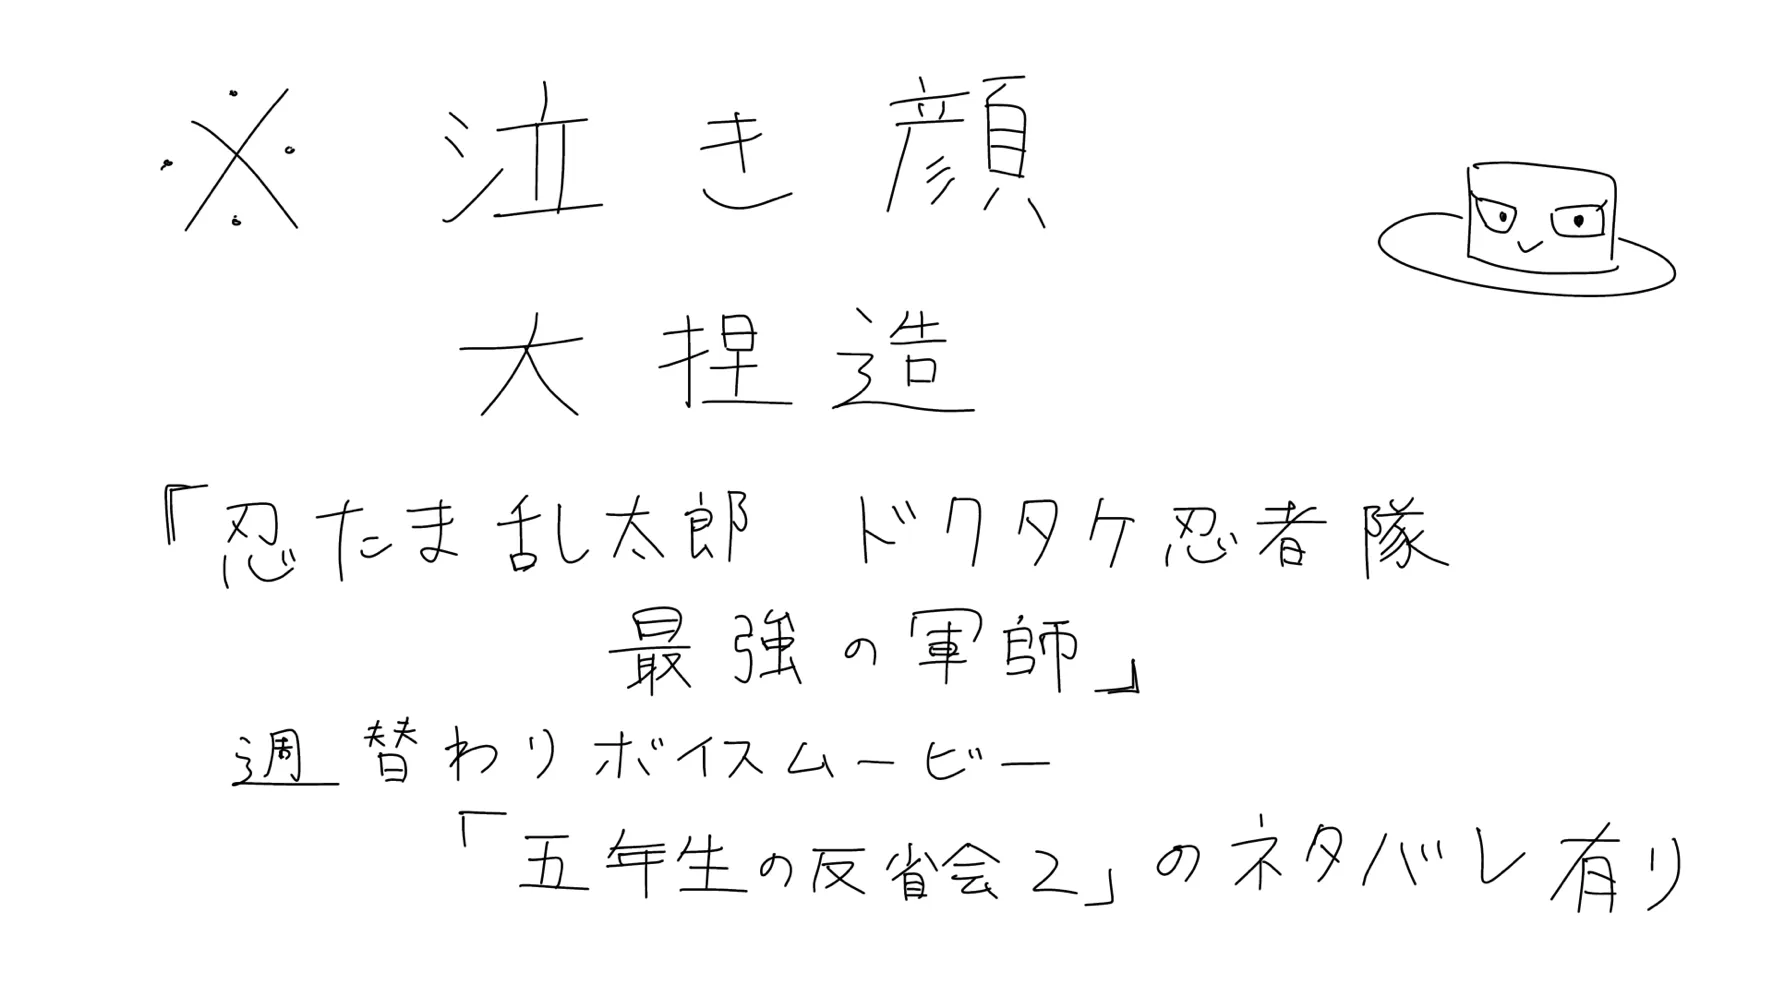 ※ 泣き顔
大捏造
『忍たま乱太郎 ドクタケ忍者隊
最強の軍師』
週替わりボイスムービー
「五年生の反省会2」のネタバレ有り